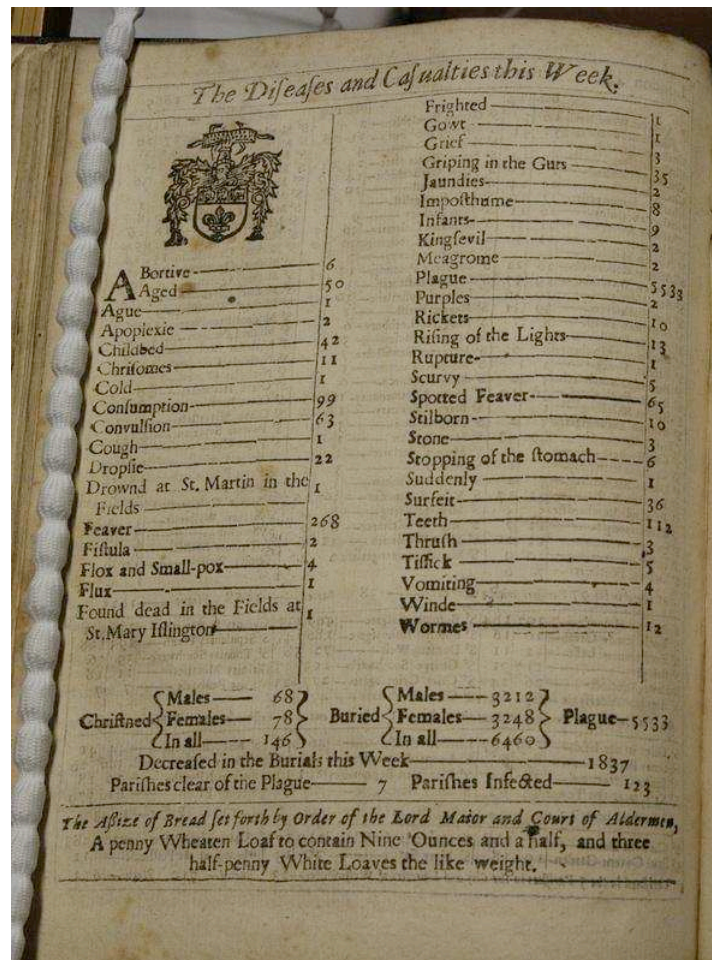 The Diſeaſes and Caſualties this Week.
ABortive 6
Aged 50
Ague 1
Apoplexie 2
Childbed 42
Chriſomes 11
Cold 1
Conſumption 99
Convulſion 63
Cough 1
Dropſie 22
Drownd at St. Martin in the
Fields 1
Feaver 268
Fiſtula 2
Flox and Small-pox 4
Flux 1
Found dead in the Fields at
St. Mary Iſlington 1
Frighted 1
Gowt 1
Grief 3
Griping in the Guts 35
Jaundies 2
Impoſthume 8
Infants 9
Kingſevil 2
Meagrome 2
Plague 5533
Purples 2
Rickets 10
Riſing of the Lights 13
Rupture 1
Scurvy 5
Spotted Feaver 65
Stilborn 10
Stone 3
Stopping of the ſtomach 6
Suddenly 1
Surfeit 36
Teeth 112
Thruſh 3
Tiſſick 5
Vomiting 4
Winde 1
Wormes 12
Males 68 Males 3212
Chriſtned Females 78 Buried Females 3248 Plague 5533
In all 146 In all 6460
Decreaſed in the Burials this Week 1837
Pariſhes clear of the Plague 7 Pariſhes Infected 123
The Aſſize of Bread ſet forth by Order of the Lord Maior and Court of Aldermen,
A penny Wheaten Loaf to contain Nine Ounces and a half, and three
half-penny White Loaves the like weight.